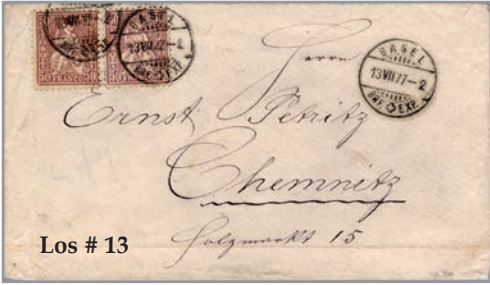 FRANCO
BASEL
13 VII 77-2
BRF. EXP.
BASEL
13 VII 77-2
BRF. EXP.
Herrn
Ernst Petritz
Chemnitz
Holzmarkt 15
Los # 13